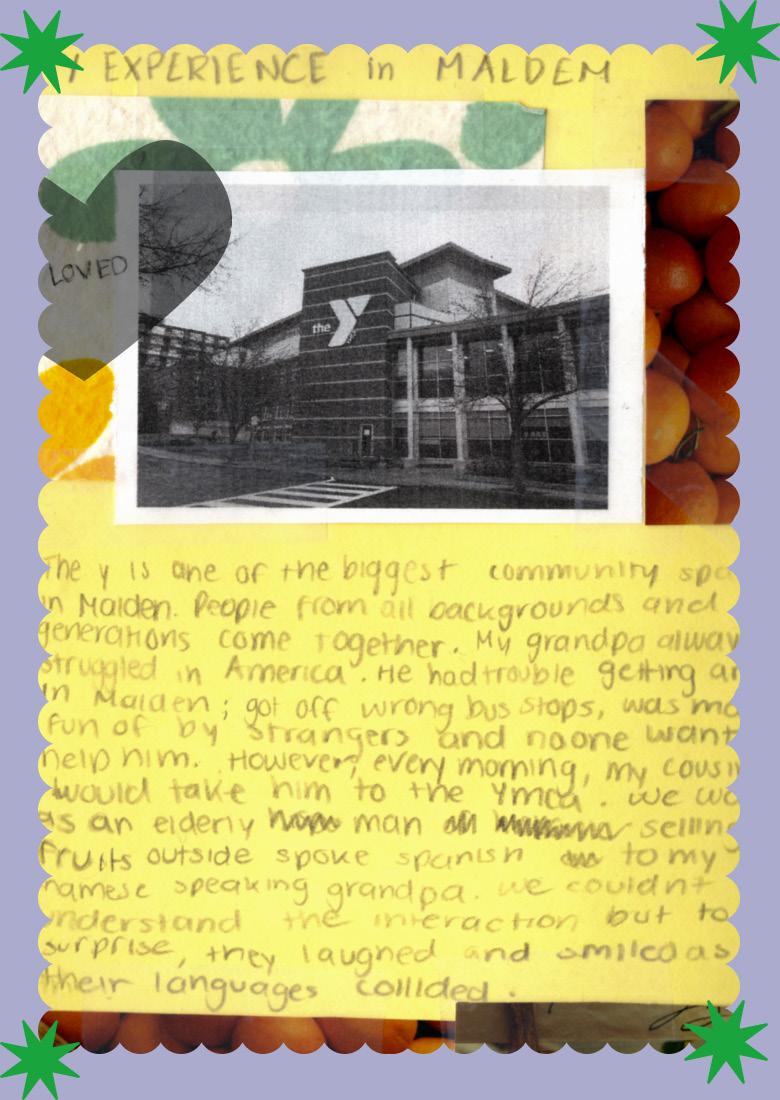 Y EXPERIENCE in MALDEM
LOVED
the Y
The y is one of the biggest community spa
in Malden. People from all backgrounds and
generations come together. My grandpa alway
struggled in America. He had trouble getting ar
in Malden; got off wrong bus stops, was ma
fun of by strangers and noone want
help him. However, every morning, my cousi
would take him to the Ymca. we wa
as an elderly man selling
fruits outside spoke spanish to my
namese speaking grandpa. we couldn't
understand the interaction but to
surprise, they laughed and smiled as
their languages collided.